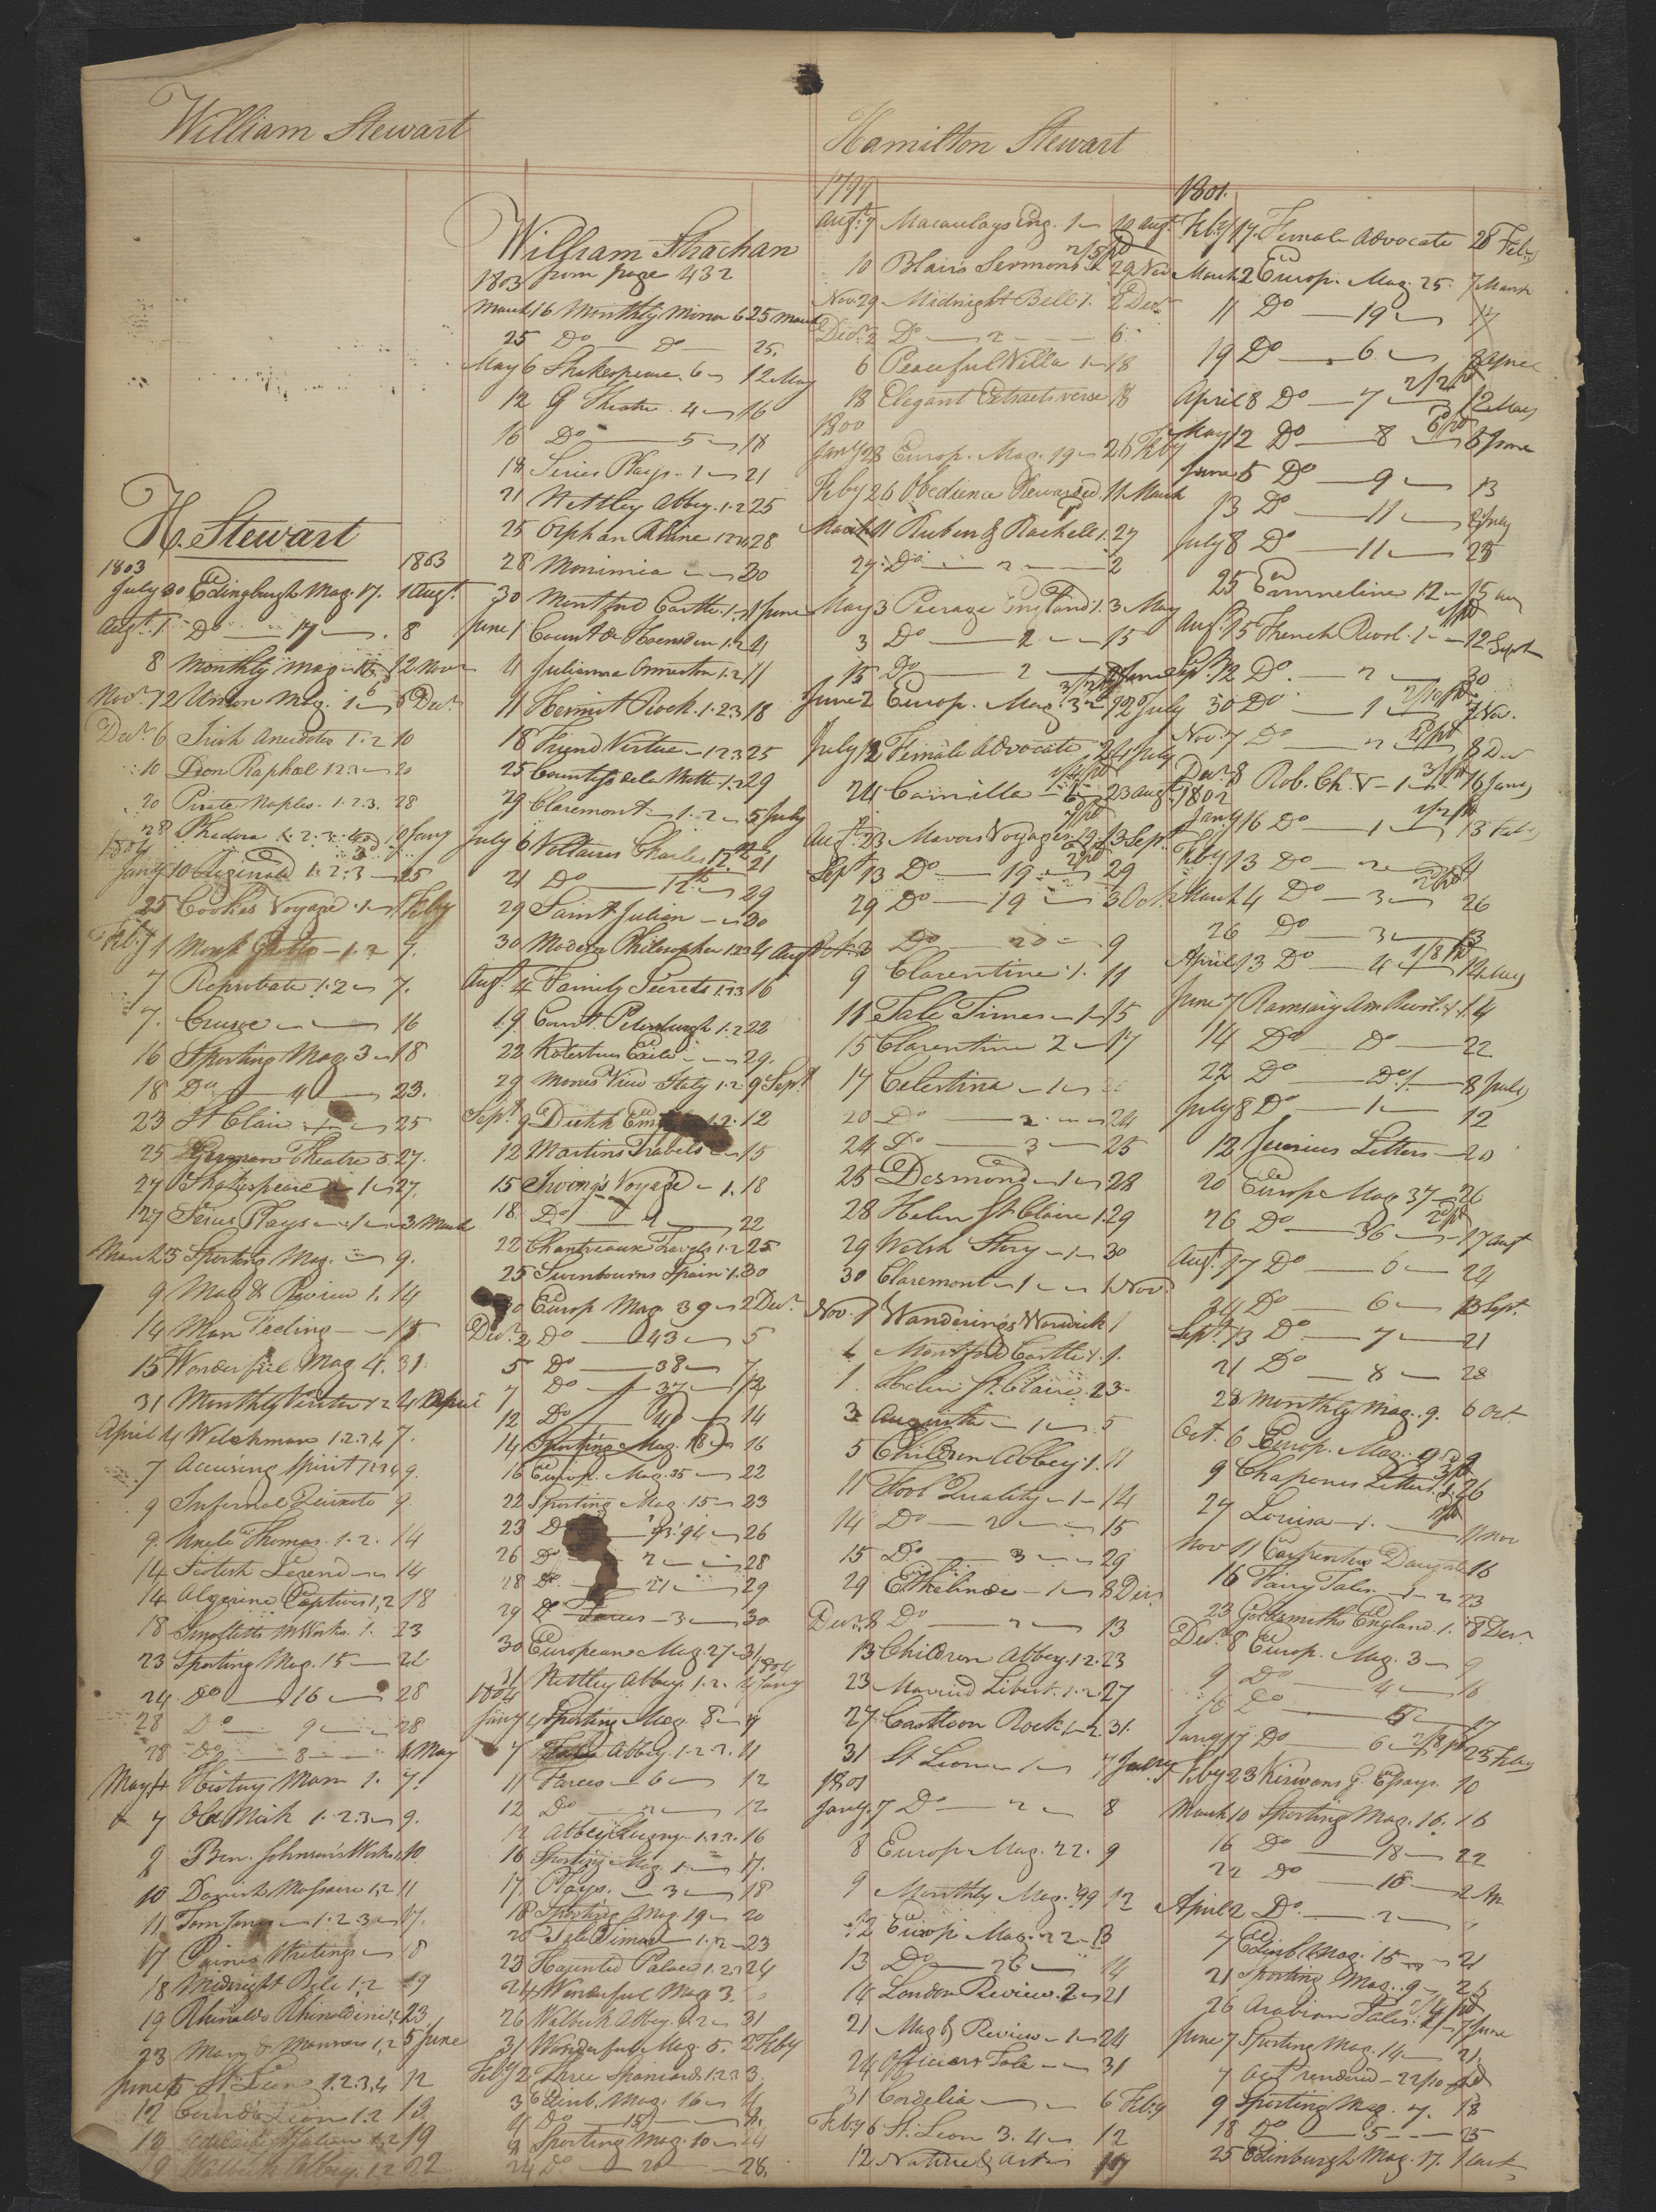 William Stewart
H. Stewart
1803 1803
July 30 Edinburgh Mag. 17. 1 Augt.
Augt. 1 Do — 17 — 8
8 Monthly Mag 12 Novr
Novr 12 Union Mag. 1 6 Decr
Decr 6 Irish Anecdotes 1.2 10
10 Don Raphael 1 2 3 — 20
20 Pirate Naples. 1.2.3. 28
28 Phedora 1.2.3.4 Jany
1804
Jany 10 1.2.3 — 25
25 Cooke's Voyage 1 — Feby
Feby 1 Monk Grotto — 1.2 7.
7 Reprobate 1.2 — 7.
7. Crusoe — 16
16 Sporting Mag. 3 — 18
18 Do — 4 — 23.
23 St Clair — 25
25 German Theatre 5. 27.
27 Shakespeare — 1 — 27.
27 Series Plays — 1 — 3 March
March 3 Sporting Mag. — 9.
9 Mag & Review 1. 14
14 Man Feeling — 15
15 Wonderful Mag 4. 31.
31 Monthly Visitor 1 2 4 April
April 4 Welchman 1.2.3.4 7.
7 Accusing Spirit 1 2 3 4 9.
9 Infernal Quixote 9
9. Uncle Thomas. 1.2. 14
14 Scotish Legend — 14
14 Algerine Captive 1,2 18
18 Smolletts M Works. 1. 23
23 Sporting Mag. 15 — 24
24 Do — 16 — 28
28 Do — 9 — 28
28 Do — 8 — 4 May
May 4 History Man 1. 7.
7 Old Nick 1.2.3 — 9.
9 Ben. Johnson's Works 10
10 Danish Massacre 1,2 11
11 Tom Jones — 1.2.3 — 17.
17 Paines Writings — 18
18 Midnight Bell 1,2 19
19 Rhinaldo Rhinaldini 1,2 23.
23 Mary 1,2 5 June
June 5 St. Leon 1.2.3,4 12
12 Count St Leon 1.2 13
13 Adelaide St Julian 1,2 19
19 Walbeck Abbey. 1.2 22
William Strachan
1803 from page 432
March 16 Monthly Mirror 6 25 March
25 Do — Do — 25.
May 6 Shakespeare. 6 — 12 May
12 G Theatre. 4 — 16
16 Do — 5 — 18
18 Series Plays. 1 — 21
21 Nettley Abbey. 1.2 25
25 Orphan Rhine 1 2 3 4 28
28 Monimia — 30
30 Montford Castle. 1.2 1 June
June 1 Count de Hoensden 1.2 4
4 Julianna Ormeston 1.2 11
11 Hermit Rock. 1.2.3 18
18 Friend Virtue — 1 2 3 25
25 Countess de la Motte 1.2 29
29 Claremont — 1.2 — 5 July
July 6 Voltaires Charles 12th 21
21 Do — 12th — 29
29 Saint Julien — 30
30 Modern Philosopher 1 2 3 4 Augt
Augt 4 Family Secrets 1.2 3 16
19 Court Petersburgh 1.2 22
22 Kotzebues Exile — 29.
29 Moores View Italy 1.2 9 Sept
Sept. 9 Dutch 1.2. 12
12 Martins Travels — 15
15 Irving's Voyage — 1. 18
18 Do — 2 — 22
22 Chantreaux Travels 1.2 25
25 Swinbourns Spain 1. 30
30 Europ Mag 39 — 2 Decr
Decr 2 Do — 43 — 5
5 Do — 38 — 7
7 Do — 37 — 12
12 Do — 40 — 14
14 Sporting Mag. 18 — 16
16 Europ. Mag. 35 — 22
22 Sporting Mag. 15 — 23
23 Do — 13.'94 — 26
26 Do — 2 — 28
28 Do — 21 — 29
29 Do Farces — 3 — 30
30 European Mag. 27 — 31
31 Nettley Abbey. 1.2. 4 Jany 1804
1804
Jany 4 Sporting Mag. 8 — 7
7 Abbey. 1.2.3. 11
11 Farces — 6 — 12
12 Do — 2 — 12
12 Abbey Clugny — 1.2.3. 16
16 Sporting Mag. 1 — 17.
17 Plays. — 3 — 18
18 Sporting Mag. 19 — 20
20 Tale Times — 1.2 — 23
23 Haunted Palace 1.2.3 24
24 Wonderful Mag 3.
26 Walbeck Abbey. 1.2 — 31
31 Wonderful Mag. 5. 2 Feby
Feby 2 Three Spaniards 1.2.3 3.
3 Edinb. Mag. 16 — 4
4 Do — 15 — 8.
8 Sporting Mag. 10 — 24
24 Do — 20 — 28.
Hamilton Stewart
1799
Augt. 7 Macaulays Eng. 1 — 10 Augt.
10 Blairs Sermons 2/5 pd 29 Nov
Nov. 29 Midnight Bell 1. 2 Decr
Decr 2 Do — 2 — 6
6 Peaceful Villa 1 — 18
18 Elegant Extracts verse 18
1800
Jany 28 Europ. Mag. 19 — 26 Feby
Feby 26 Obedience Rewarded. 11 March
March 11 Ruben & Rachell 1. 27
27. Do — 2 — 2
May 3 Peerage England 1. 3 May
3 Do — 2 — 15
15 Do — 2 — 2 June
June 2 Europ. Mag. 3 — 12 July
July 12 Female Advocate 24 July
24 Camilla — 23 Augt
Augt 23 Mavors Voyages 13 Sept.
Sept 13 Do — 19 — 29
29 Do — 19 — 3 Oct.
Oct. 3 Do — 20 — 9
9 Clarentine. 1. 11
11 Tale Times — 1 — 15
15 Clarentine 2 — 17
17 Celestina — 1 — 20
20 Do — 2 — 24
24 Do — 3 — 25
25 Desmond — 1 — 28
28 Helen St Claire 1. 29
29 Welsh Story — 1 — 30
30 Claremont — 1 — 1 Novr
Nov. 1 Wanderings Warwick 1
1 Montford Castle 1. 1.
1. Helen St. Claire. 2 3.
3 Augusta — 1 — 5
5 Children Abbey. 1. 11
11 Fool Quality — 1 — 14
14 Do — 2 — 15
15 Do — 3 — 29
29 Ethelinde — 1 — 8 Decr
Decr. 8 Do — 2 — 13
13 Children Abbey. 1.2. 23
23 Married Libert. 1.2. 27
27 Castleon Rock 1 — 2. 31.
31 St Leon — 1 — 7 Jany
1801
Jany. 7 Do — 2 — 8
8 Europ Mag. 22. 9
9 Monthly Mag. '99 12
12 Europ Mag. 22 — 13
13 Do — 26 — 14
14 London Review. 2 — 21
21 Mag & Review — 1 — 24
24 Officers Tale — 31
31 Cordelia — 6 Feby
Feby 6 St. Leon 3. 4 — 12
12 Nature & Art — 17
1801.
Feby 17. Female Advocate 28 Feby
March 2 Europ. Mag. 25. 7 March
11 Do — 19 — 17
19 Do — 6 — 8 April
April 8 Do — 7 — 2/2 pd 12 May
May 12 Do — 8 — 6d pd 5 June
June 5 Do — 9 — 13
13 Do — 11 — 8 July
July 8 Do — 11 — 25
25 Emmeline 1 2 — 15 Aug
Aug. 15 French Revol. 1 — 12 Sept
Sept. 12 Do. — 2 — 30
30 Do — 1 — 7 Nov.
Nov. 7 Do — 2 — 8 Decr
Decr 8 Rob. Ch. V — 1 — 16 Jany
1802
Jany 16 Do — 1 — 13 Feby
Feby 13 Do — 2 — 4
March 4 Do — 3 — 26
26 Do — 3 — 13
April 13 Do — 4 — 1/8 pd 14 May
June 7 Ramsay Am Revol. 1. 14
14 Do — Do — 22
22 Do — Do 1. — 8 July
July 8 Do — 1 — 12
12 Junius Letters — 20
20 Europ Mag 37 — 26
26 Do — 36 — 17 Augt
Augt. 17 Do — 6 — 24
24 Do — 6 — 13 Sept.
Sept. 13 Do — 7 — 21
21 Do — 8 — 28
28 Monthly Mag. 9. 6 Oct
Oct. 6 Europ. Mag. 9
9 Chapones Letters 26
27 Louisa — 1. — 11 Nov
Nov 11 Carpenters Daughter 16
16 Fairy Tales — 1 — 2 23
23 Goldsmiths England. 1. 8 Decr.
Decr. 8 Europ. Mag. 3 — 9
9 Do — 4 — 16
16 Do — 5 — 17
Jany 17 Do — 6 — 2/8 pd 23 Feby
Feby 23 Kirwans G. Essays. 10
March 10 Sporting Mag. 16. 16
16 Do — 18 — 22
22 Do — 18 — 2 Ap
April 2 Do — 2 —
7 Edinb. Mag. 15 — 21
21 Sporting Mag. 9 — 26
26 Arabian Tales. 7 June
June 7 Sporting Mag. 14 — 21
7 Act rendered — 22/10 pd
9 Sporting Mag. 7. 18
18 Do — 5 — 25
25 Edinburgh Mag. 17. 1 Augt